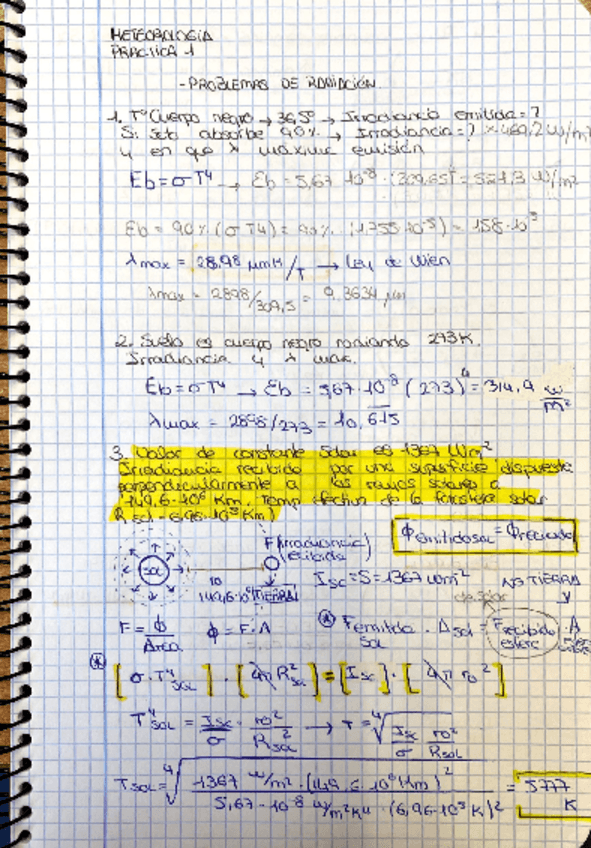 METEOROLOGIA
PRACTICA 1
- PROBLEMAS DE RADIACIÓN
1. Tª Cuerpo negro → 36,5º → Irradiancia emitida = ?
Si solo absorbe 90% → Irradiancia = ? → 469,2 W/m²
y en que λ máxima emisión
Eb = σT⁴ → Eb = 5,67·10⁻⁸ · (309,65)⁴ = 521,3 W/m²
Eb = 90% (σT4) = 90% · (1,755·10⁻⁵) = 158·10⁵
λmax = 2898 μmK/T → Ley de Wien
λmax = 2898/309,5 = 9,3634 μm
2. Suelo es cuerpo negro radiando 273K.
Irradiancia y λ max.
Eb = σT⁴ → Eb = 5,67·10⁻⁸ (273)⁴ = 314,9 W/m²
λmax = 2898/273 = 10,615
3. Valor de constante solar es 1367 Wm²
Irradiancia recibida por una superficie dispuesta
perpendicularmente a los rayos solares a
149,6·10⁶ Km. Temp efectiva de la fotosfera solar
R sol = 6,96·10⁵ Km)
ϕemitidosol = ϕrecibido
F (Irradiancia)
recibida
SOL
r0
149,6·10⁶
TIERRA
Isc = S = 1367 Wm²
NO TIERRA
de solar
y
F = ϕ/Area ϕ = F·A
* Femitida sol · Asol = Frecibida esfera · A esfera
* [σ·T⁴SOL] · [4π R²sol] = [Isc] · [4π r0²]
T⁴SOL = Isc/σ · r0²/R²SOL → T = ⁴√Isc/σ r0²/RSOL
TSOL = ⁴√1367 W/m² · (149,6·10⁶ Km)²/5,67·10⁻⁸ W/m²K4 · (6,96·10⁵ K)² = 5777 K